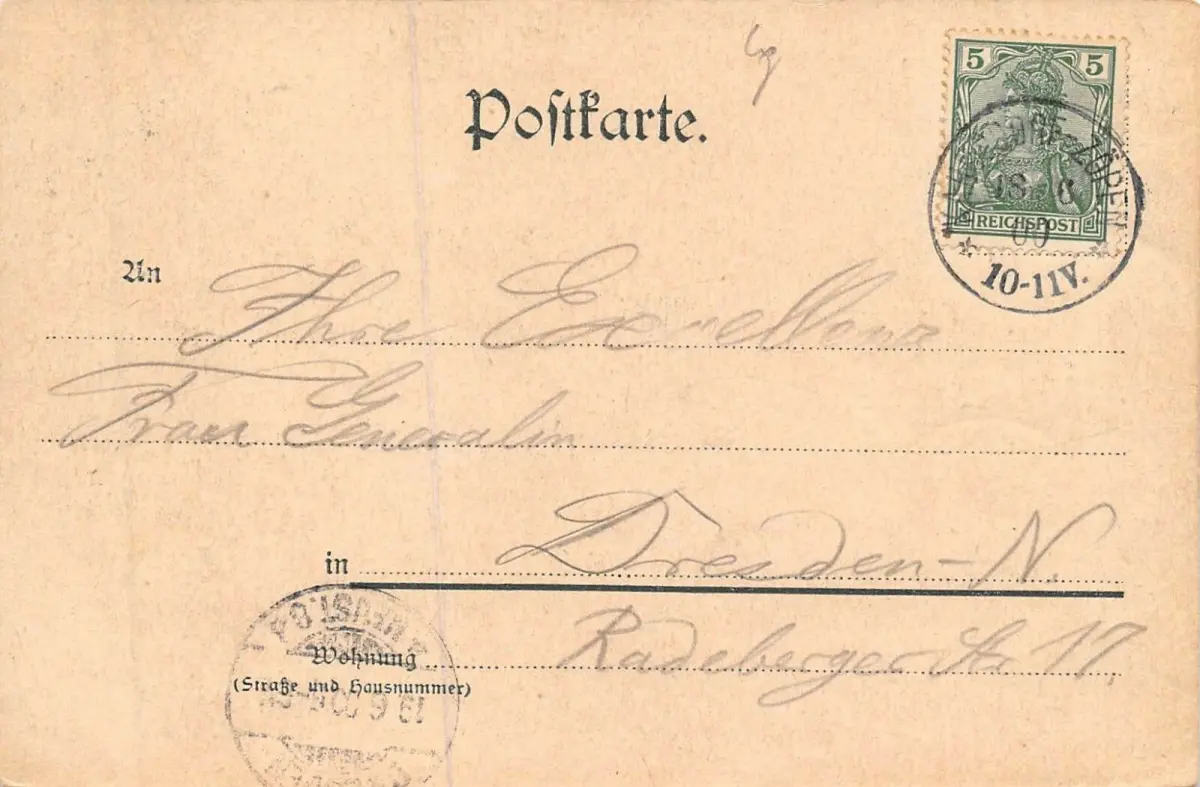 Postkarte.
5 5
REICHSPOST
18 6
00
10-11V.
An Ihre Excellenz
Frau Generalin
in Dresden-N.
Wohnung Radeberger Str 17.
(Straße und Hausnummer)
19 6 00